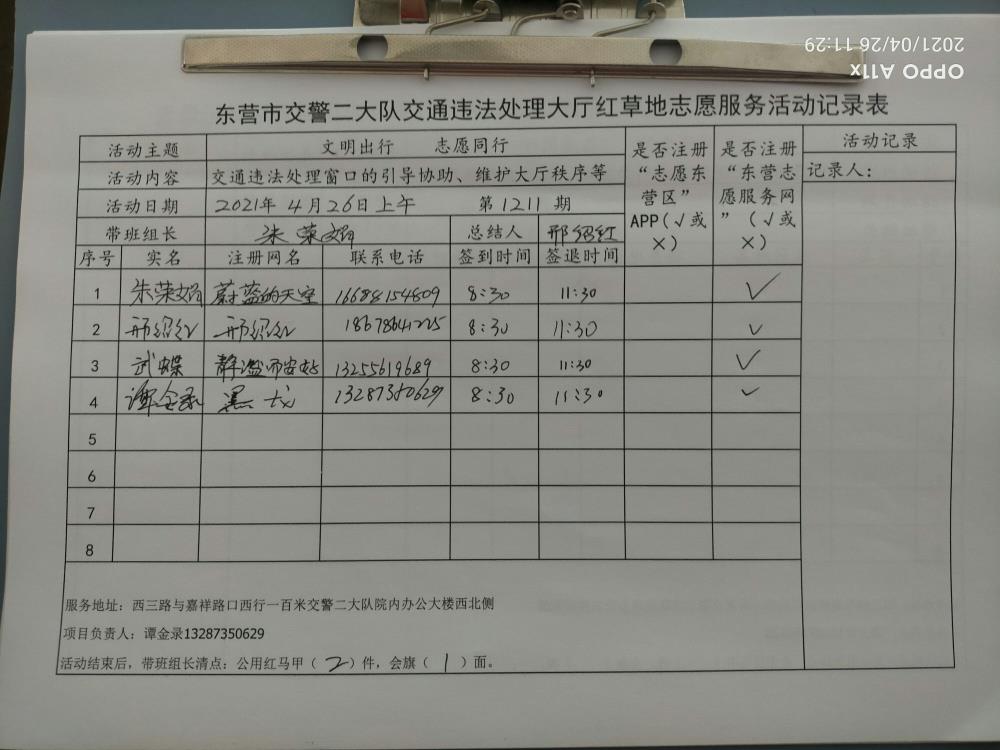 OPPO A11x
2021/04/26 11:29
东营市交警二大队交通违法处理大厅红草地志愿服务活动记录表
活动主题 文明出行 志愿同行
活动内容 交通违法处理窗口的引导协助、维护大厅秩序等
活动日期 2021年4月26日上午 第1211期
带班组长 朱荣娟 总结人 邢绍红
是否注册“志愿东营区”APP(√或×)
是否注册“东营志愿服务网”(√或×)
活动记录
记录人:
序号 实名 注册网名 联系电话 签到时间 签退时间
1 朱荣娟 蔚蓝的天空 16688154809 8:30 11:30 √
2 邢绍红 邢绍红 18678641225 8:30 11:30 √
3 武蝶 13255619689 8:30 11:30 √
4 谭金录 黑龙 13287350629 8:30 11:30 √
5
6
7
8
服务地址:西三路与嘉祥路口西行一百米交警二大队院内办公大楼西北侧
项目负责人:谭金录13287350629
活动结束后,带班组长清点:公用红马甲(2)件,会旗(1)面。